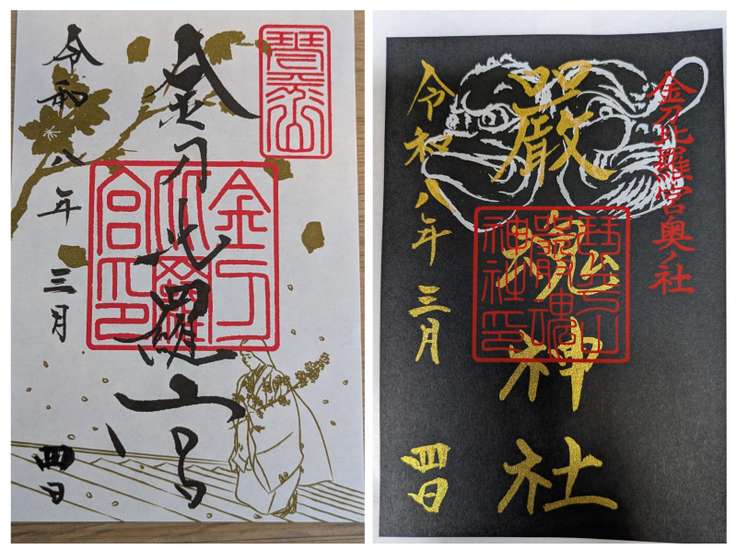 琴平山
金刀比羅宮
金刀比羅宮印
令和八年三月四日
金刀比羅宮奥ノ社
嚴魂神社
琴平山嚴魂神社印
令和八年三月四日